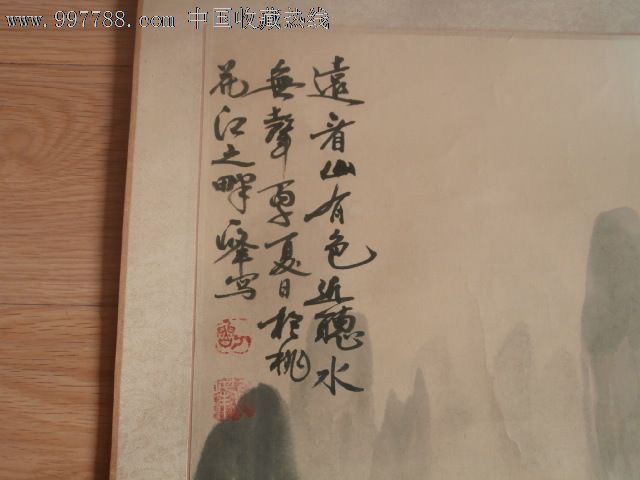 www.997788.com 中国收藏热线
遠看山有色近聽水
無聲夏日於桃
花江之畔写